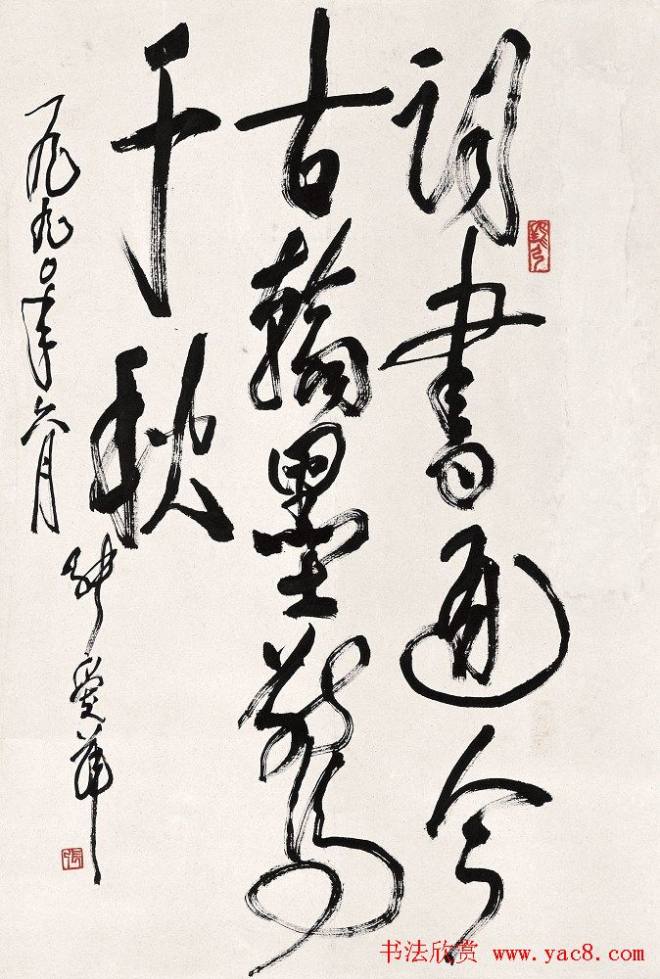 词书通今
古翰墨惊
千秋
一九九〇年六月
张爱萍
张
书法欣赏 www.yac8.com